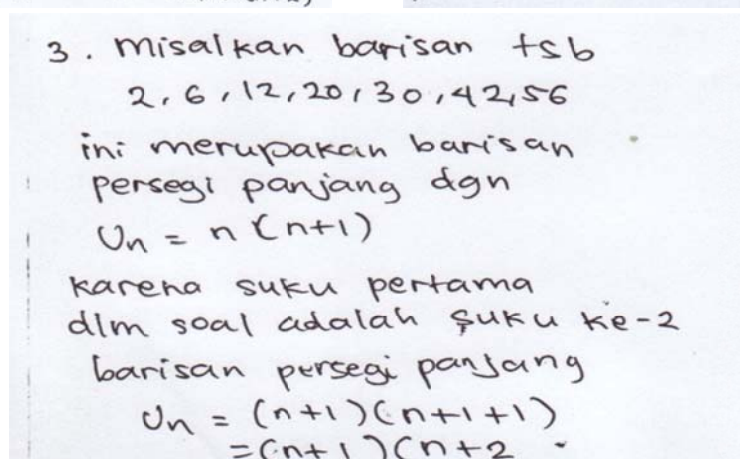 3. Misalkan barisan tsb
2, 6, 12, 20, 30, 42, 56
ini merupakan barisan
persegi panjang dgn
Un = n (n+1)
karena suku pertama
dlm soal adalah suku ke-2
barisan persegi panjang
Un = (n+1)(n+1+1)
=(n+1)(n+2